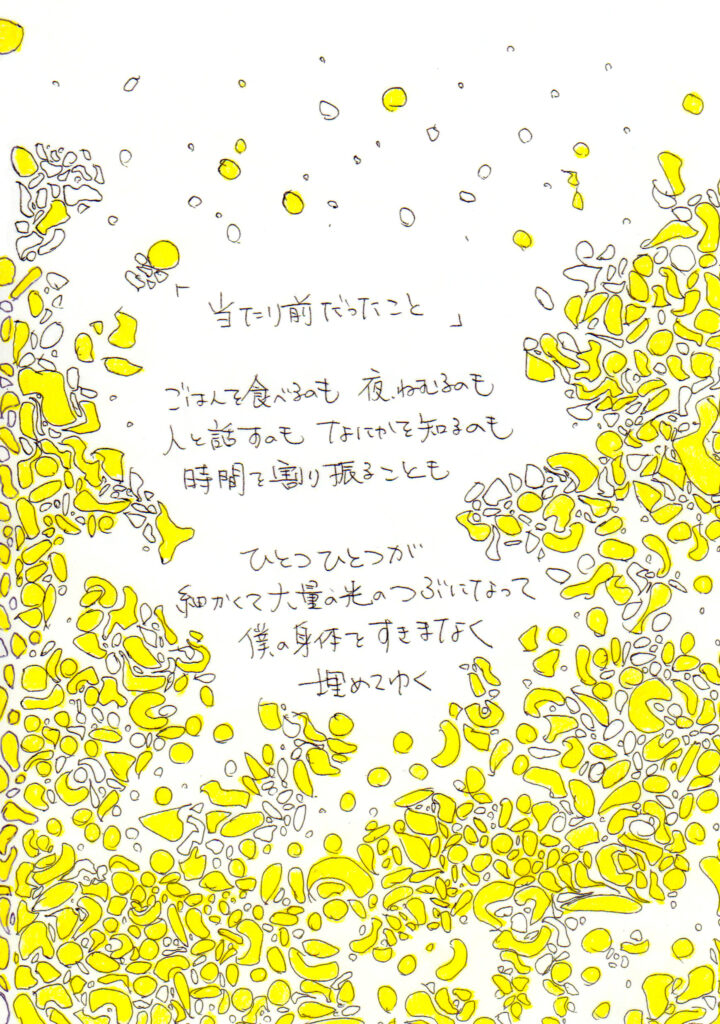 「当たり前だったこと」
ごはんを食べるのも 夜、ねむるのも
人と話すのも なにかを知るのも
時間を割り振ることも
ひとつひとつが
細かくて大量の光のつぶになって
僕の身体をすきまなく
埋めてゆく